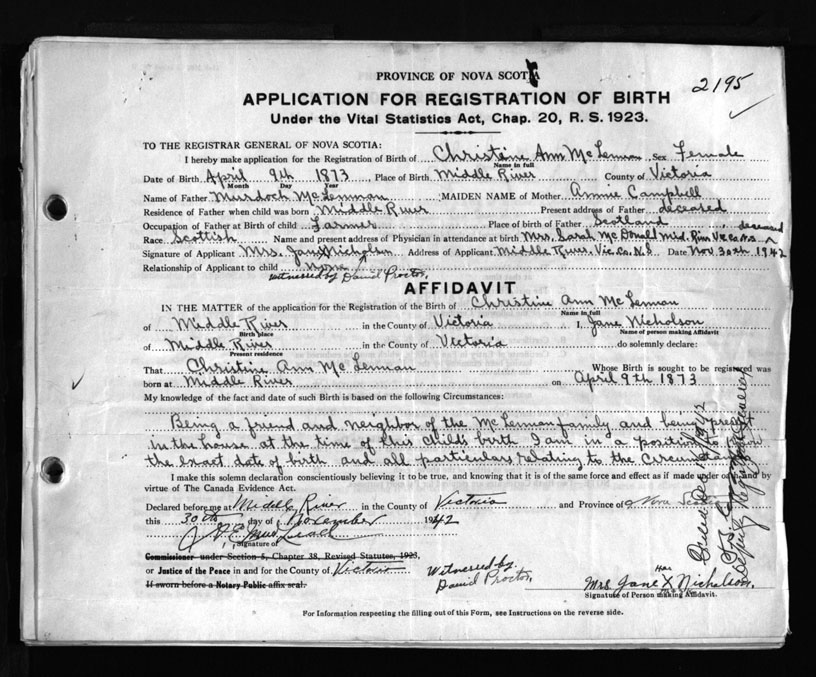 PROVINCE OF NOVA SCOTIA
2195
APPLICATION FOR REGISTRATION OF BIRTH
Under the Vital Statistics Act, Chap. 20, R. S. 1923.
TO THE REGISTRAR GENERAL OF NOVA SCOTIA:
I hereby make application for the Registration of Birth of Christine Ann McLennan Sex Female
Name in full
Date of Birth April 9th 1873 Place of Birth Middle River County of Victoria
Month Day Year
Name of Father Murdoch McLennan MAIDEN NAME of Mother Annie Campbell
Residence of Father when child was born Middle River Present address of Father deceased
Occupation of Father at Birth of child Farmer Place of birth of Father Scotland
deceased
Race Scottish Name and present address of Physician in attendance at birth Mrs. Sarah McDonald Mid. River Vic Co. N.S.
Signature of Applicant Mrs. Jane Nicholson Address of Applicant Middle River, Vic Co. N.S Date Nov 30th 1942
Relationship of Applicant to child none
witnessed by David Proctor,
AFFIDAVIT
IN THE MATTER of the application for the Registration of the Birth of Christine Ann McLennan
Name in full
of Middle River in the County of Victoria I, Jane Nicholson
Birth place Name of person making Affidavit
of Middle River in the County of Victoria do solemnly declare:
Present residence
That Christine Ann McLennan Whose Birth is sought to be registered was
born at Middle River on April 9th 1873
My knowledge of the fact and date of such Birth is based on the following Circumstances:
Being a friend and neighbor of the McLennan family and being present
in the house at the time of this child's birth I am in a position to know
the exact date of birth and all particulars relating to the circumstances
I make this solemn declaration conscientiously believing it to be true, and knowing that it is of the same force and effect as if made under oath and by
virtue of The Canada Evidence Act.
Declared before me at Middle River in the County of Victoria and Province of Nova Scotia
this 30th day of November 1942
Signature of
Commissioner under Section 5, Chapter 38, Revised Statutes, 1923,
or Justice of the Peace in and for the County of Victoria
If sworn before a Notary Public affix seal.
Witnessed by
David Proctor,
Her
Mrs. Jane X Nicholson,
mark
Signature of Person making Affidavit.
Deputy Registrar General
For Information respecting the filling out of this Form, see Instructions on the reverse side.